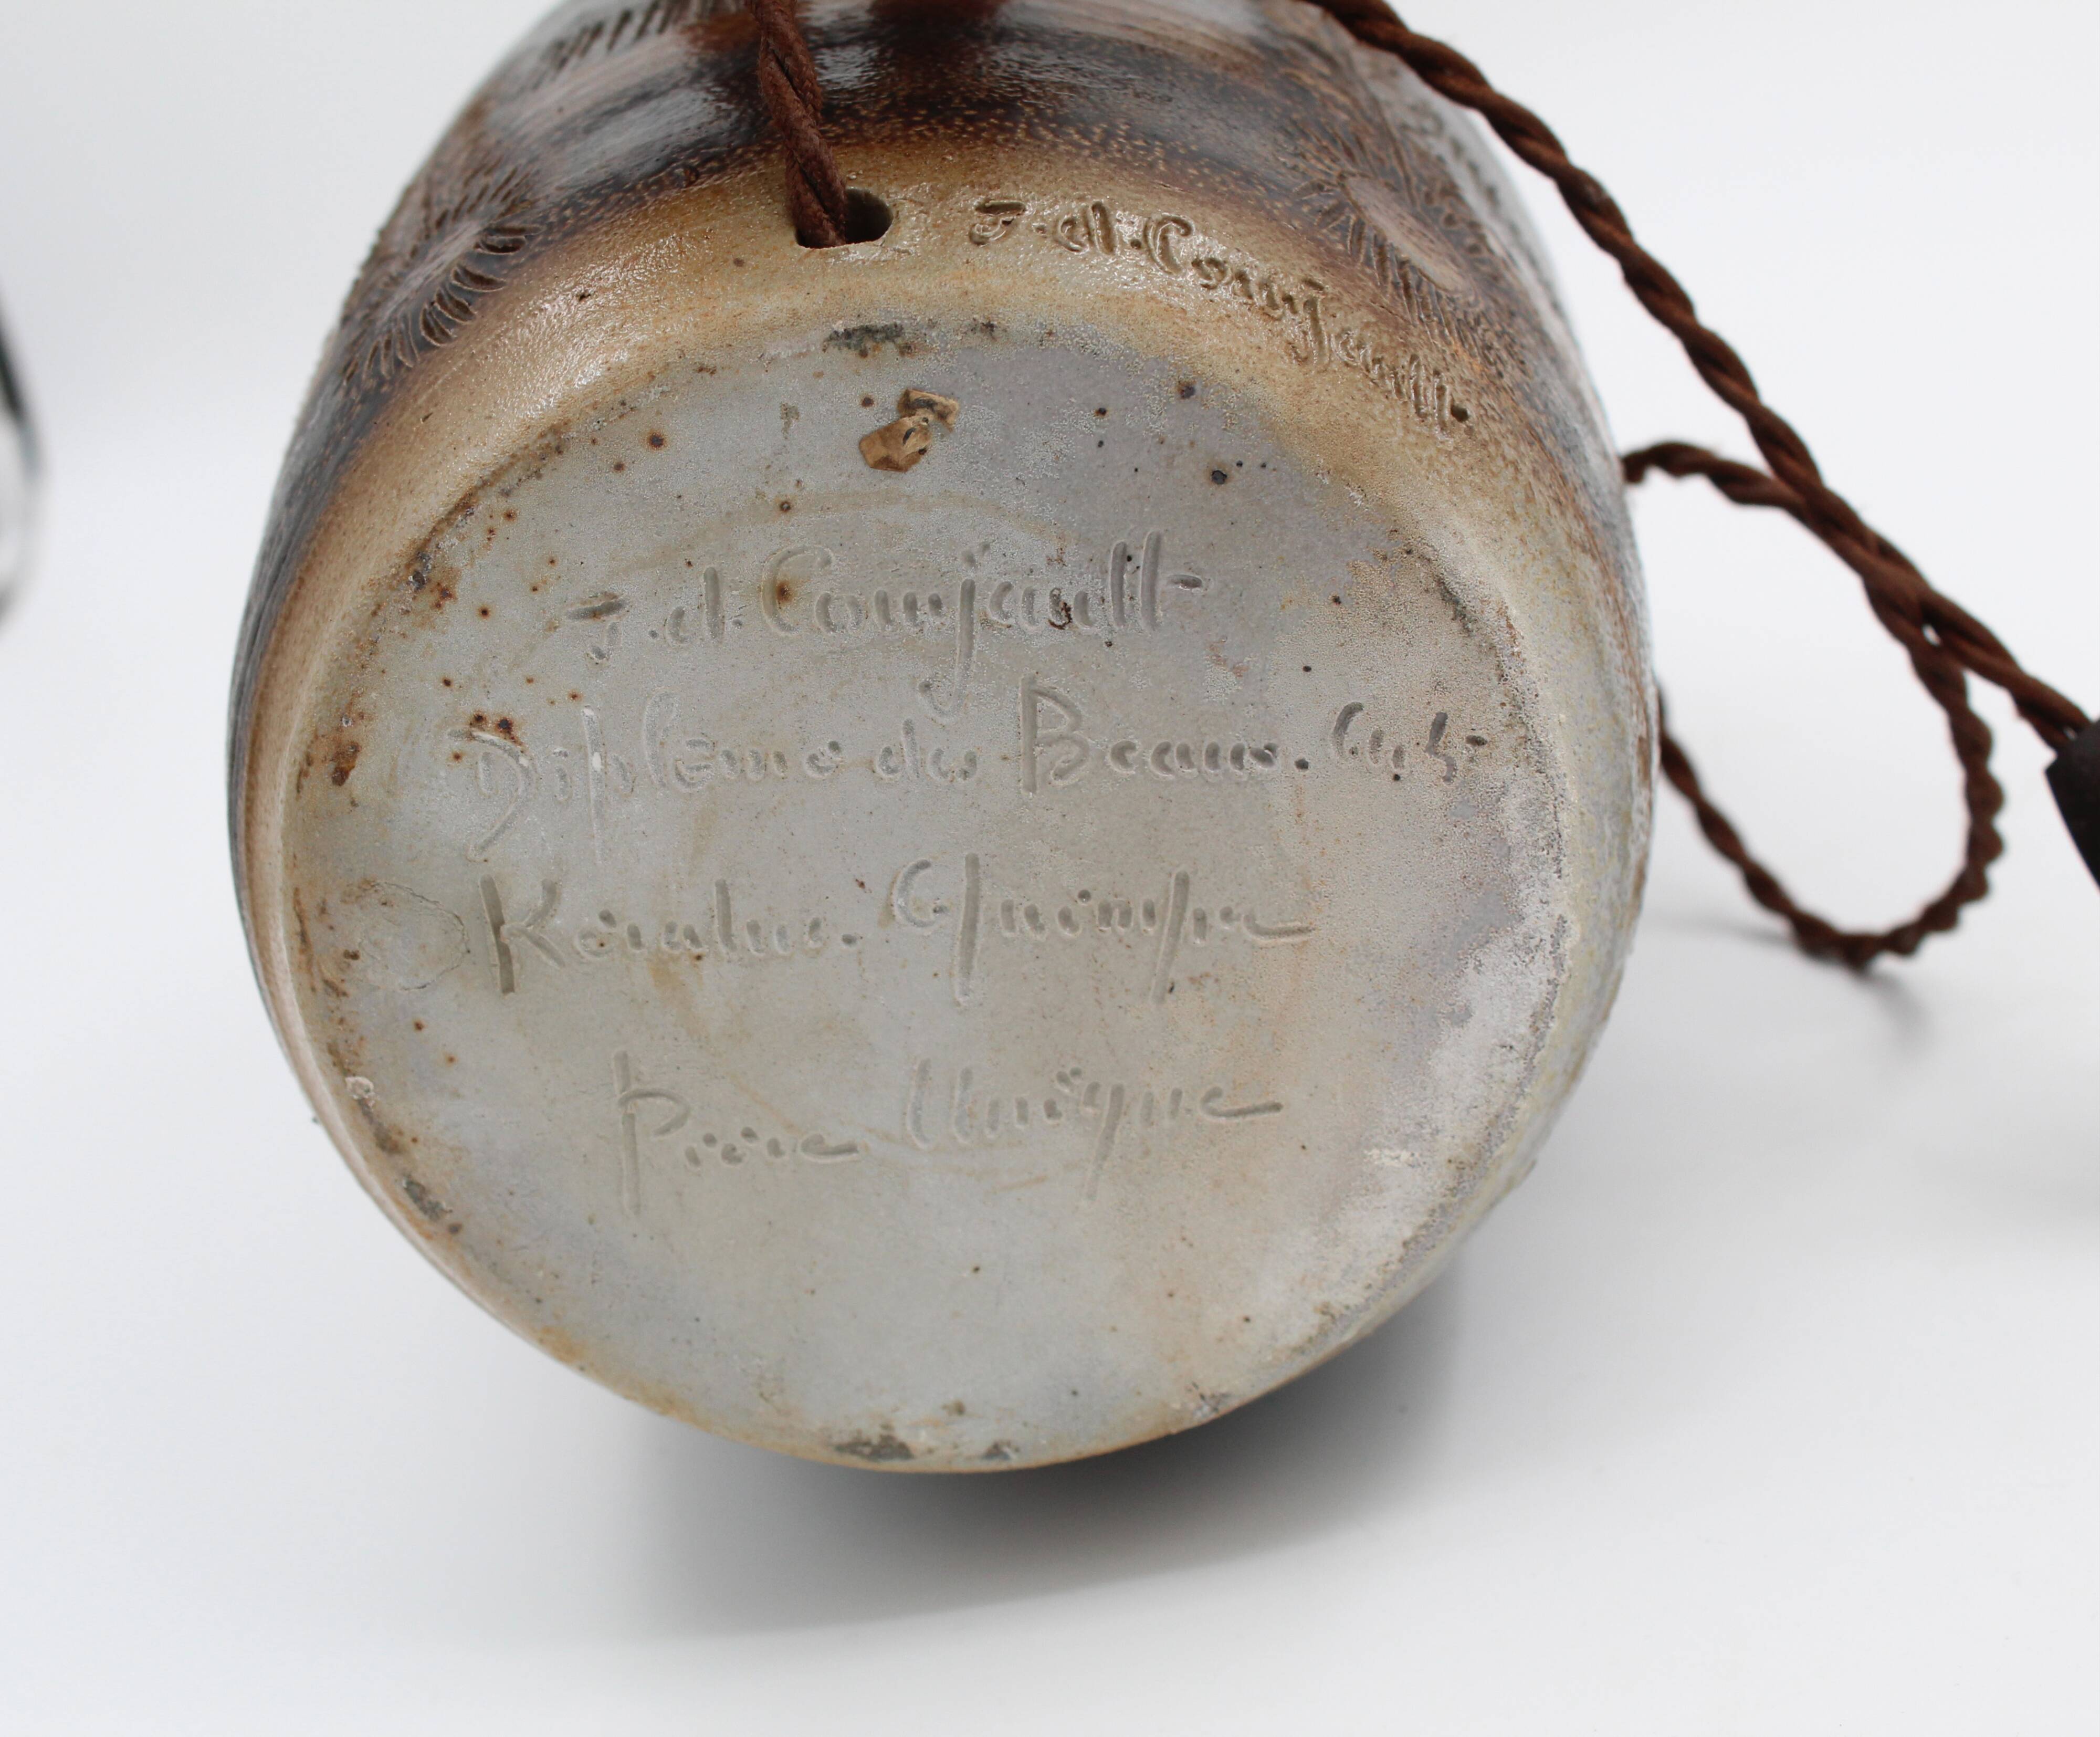 J.d. Coujault.
J.d. Coujault
Diplôme des Beaux.Arts.
Keraluc. Quimper
Pièce Unique